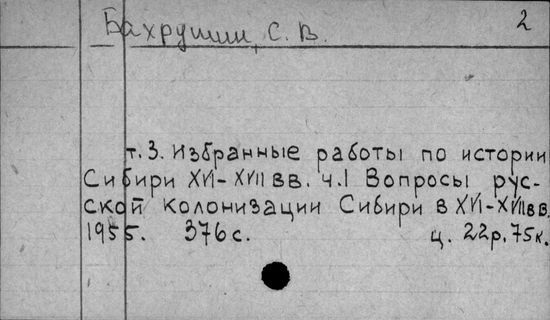 Бахрушин, С. В. 2
т. 3. Избранные работы по истории
Сибири XVI-XVII вв. ч.1 Вопросы рус-
ской колонизации Сибири в XVI-XVII вв.
1955. 376 с. ц. 22р.75к.